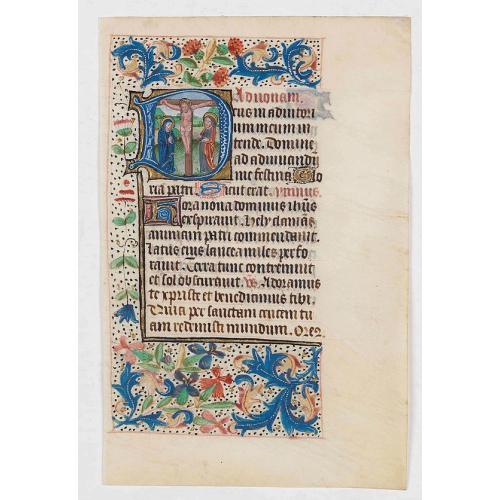 Ad nonam.
Deus in adiutori
um meum in
tende. Domine
ad adiuvandu
me festina Glo
ria patri. Sicut erat. Ymnus.
Hora nona dominus ihus
expiravit. Hely clamans
animam patri commendavit.
Latus eius lancea miles perfo
ravit. Terra tunc contremuit
et sol obscuravit. Vs Adoramus
te xpriste et benedicimus tibi.
Quia per sanctam crucem tu
am redemisti mundum. Oreo.